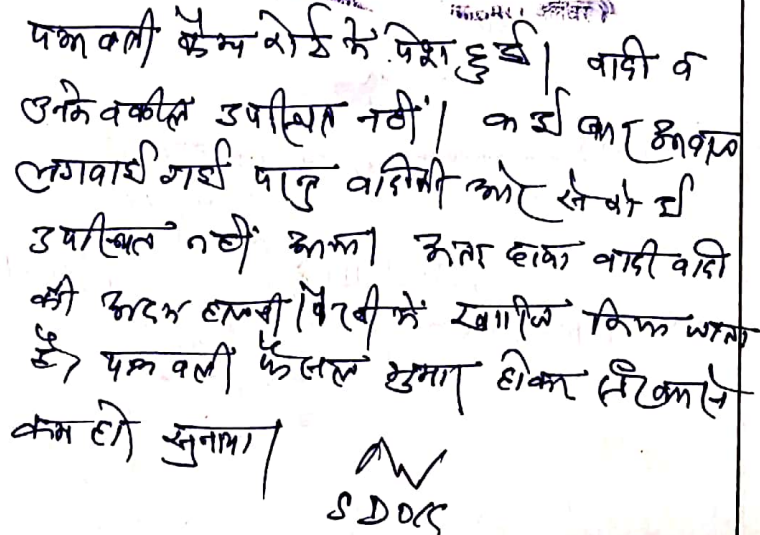 पत्रावली कैम्प कोर्ट में पेश हुई। वादी व
उनके वकील उपस्थित नहीं। कई बार आवाज
लगवाई गई परन्तु वादी की ओर से कोई
उपस्थित नहीं आया। अतः दावा वादी वादी
की अदम हाजरी/पैरवी में खारिज किया जाता
है। पत्रावली फैसल शुमार होकर नम्बर से
कम हो सुनाया।
SDO